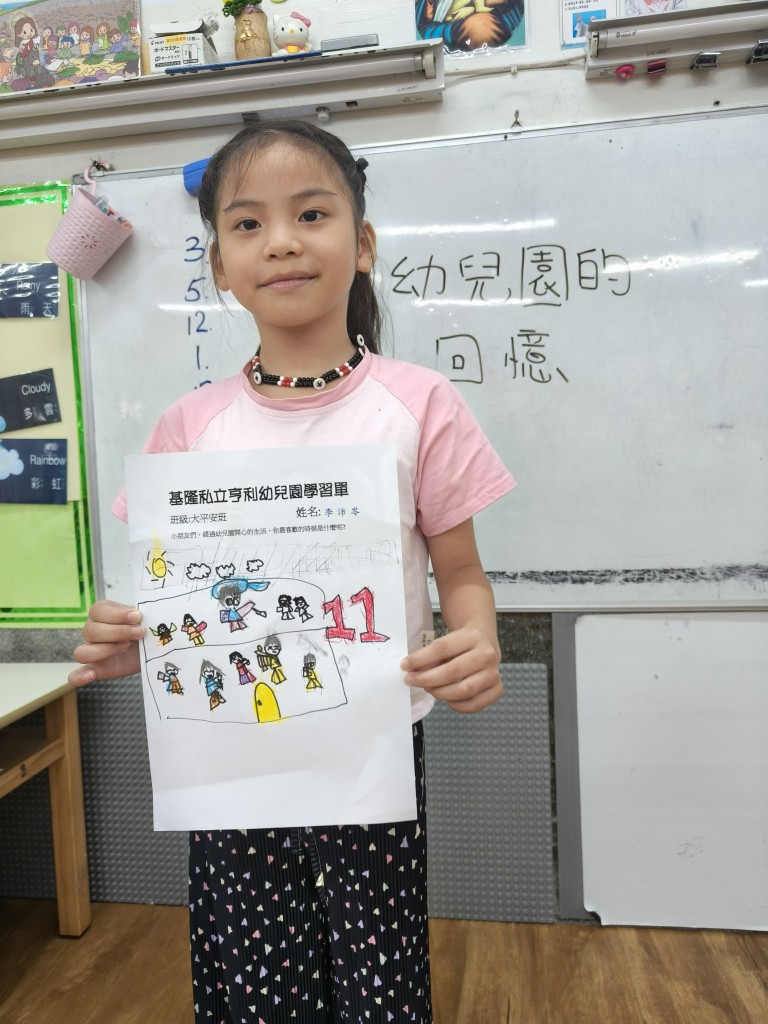 幼兒園的
回憶
3
5.
12.
1.
Rainy
雨天
Cloudy
多雲
Rainbow
彩虹
基隆私立亨利幼兒園學習單
班級:大平安班 姓名:李沛岑
小朋友們,經過幼兒園開心的生活,你最喜歡的時候是什麼呢?
11